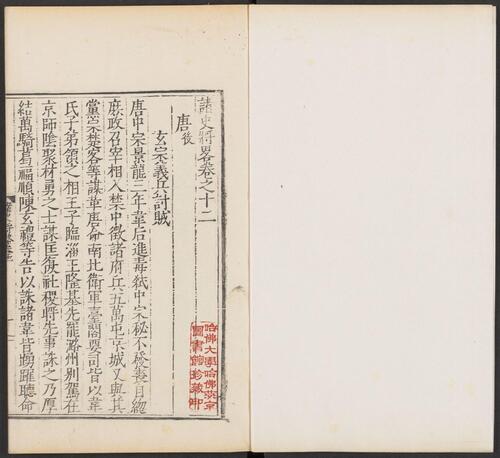 諸史將畧卷之十二
唐後
玄宗義兵討賊
唐中宗景龍三年韋后進毒弒中宗秘不發喪自緫
庶政召宰相入禁中徵諸府兵五萬屯京城又與其
黨宗楚客等謀革唐命南北衛軍臺閣要司皆以韋
氏子弟領之相王子臨淄王隆基先罷潞州別駕在
京師陰聚材勇之士謀匡復社稷將先事誅之乃厚
結萬騎葛福順陳玄禮等告以誅諸韋皆踴躍聽命
哈佛大學哈佛燕京
圖書館珍藏印